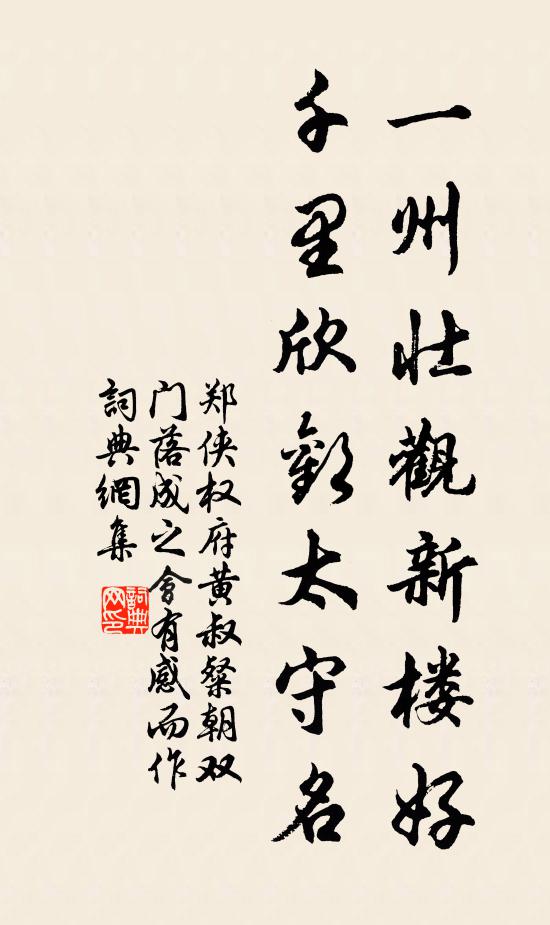 一州壮觀新楼好
千里欣歡太守名
郑侠权府黄叔粲朝双
门落成之會有感而作
詞典網集
詞典
网印